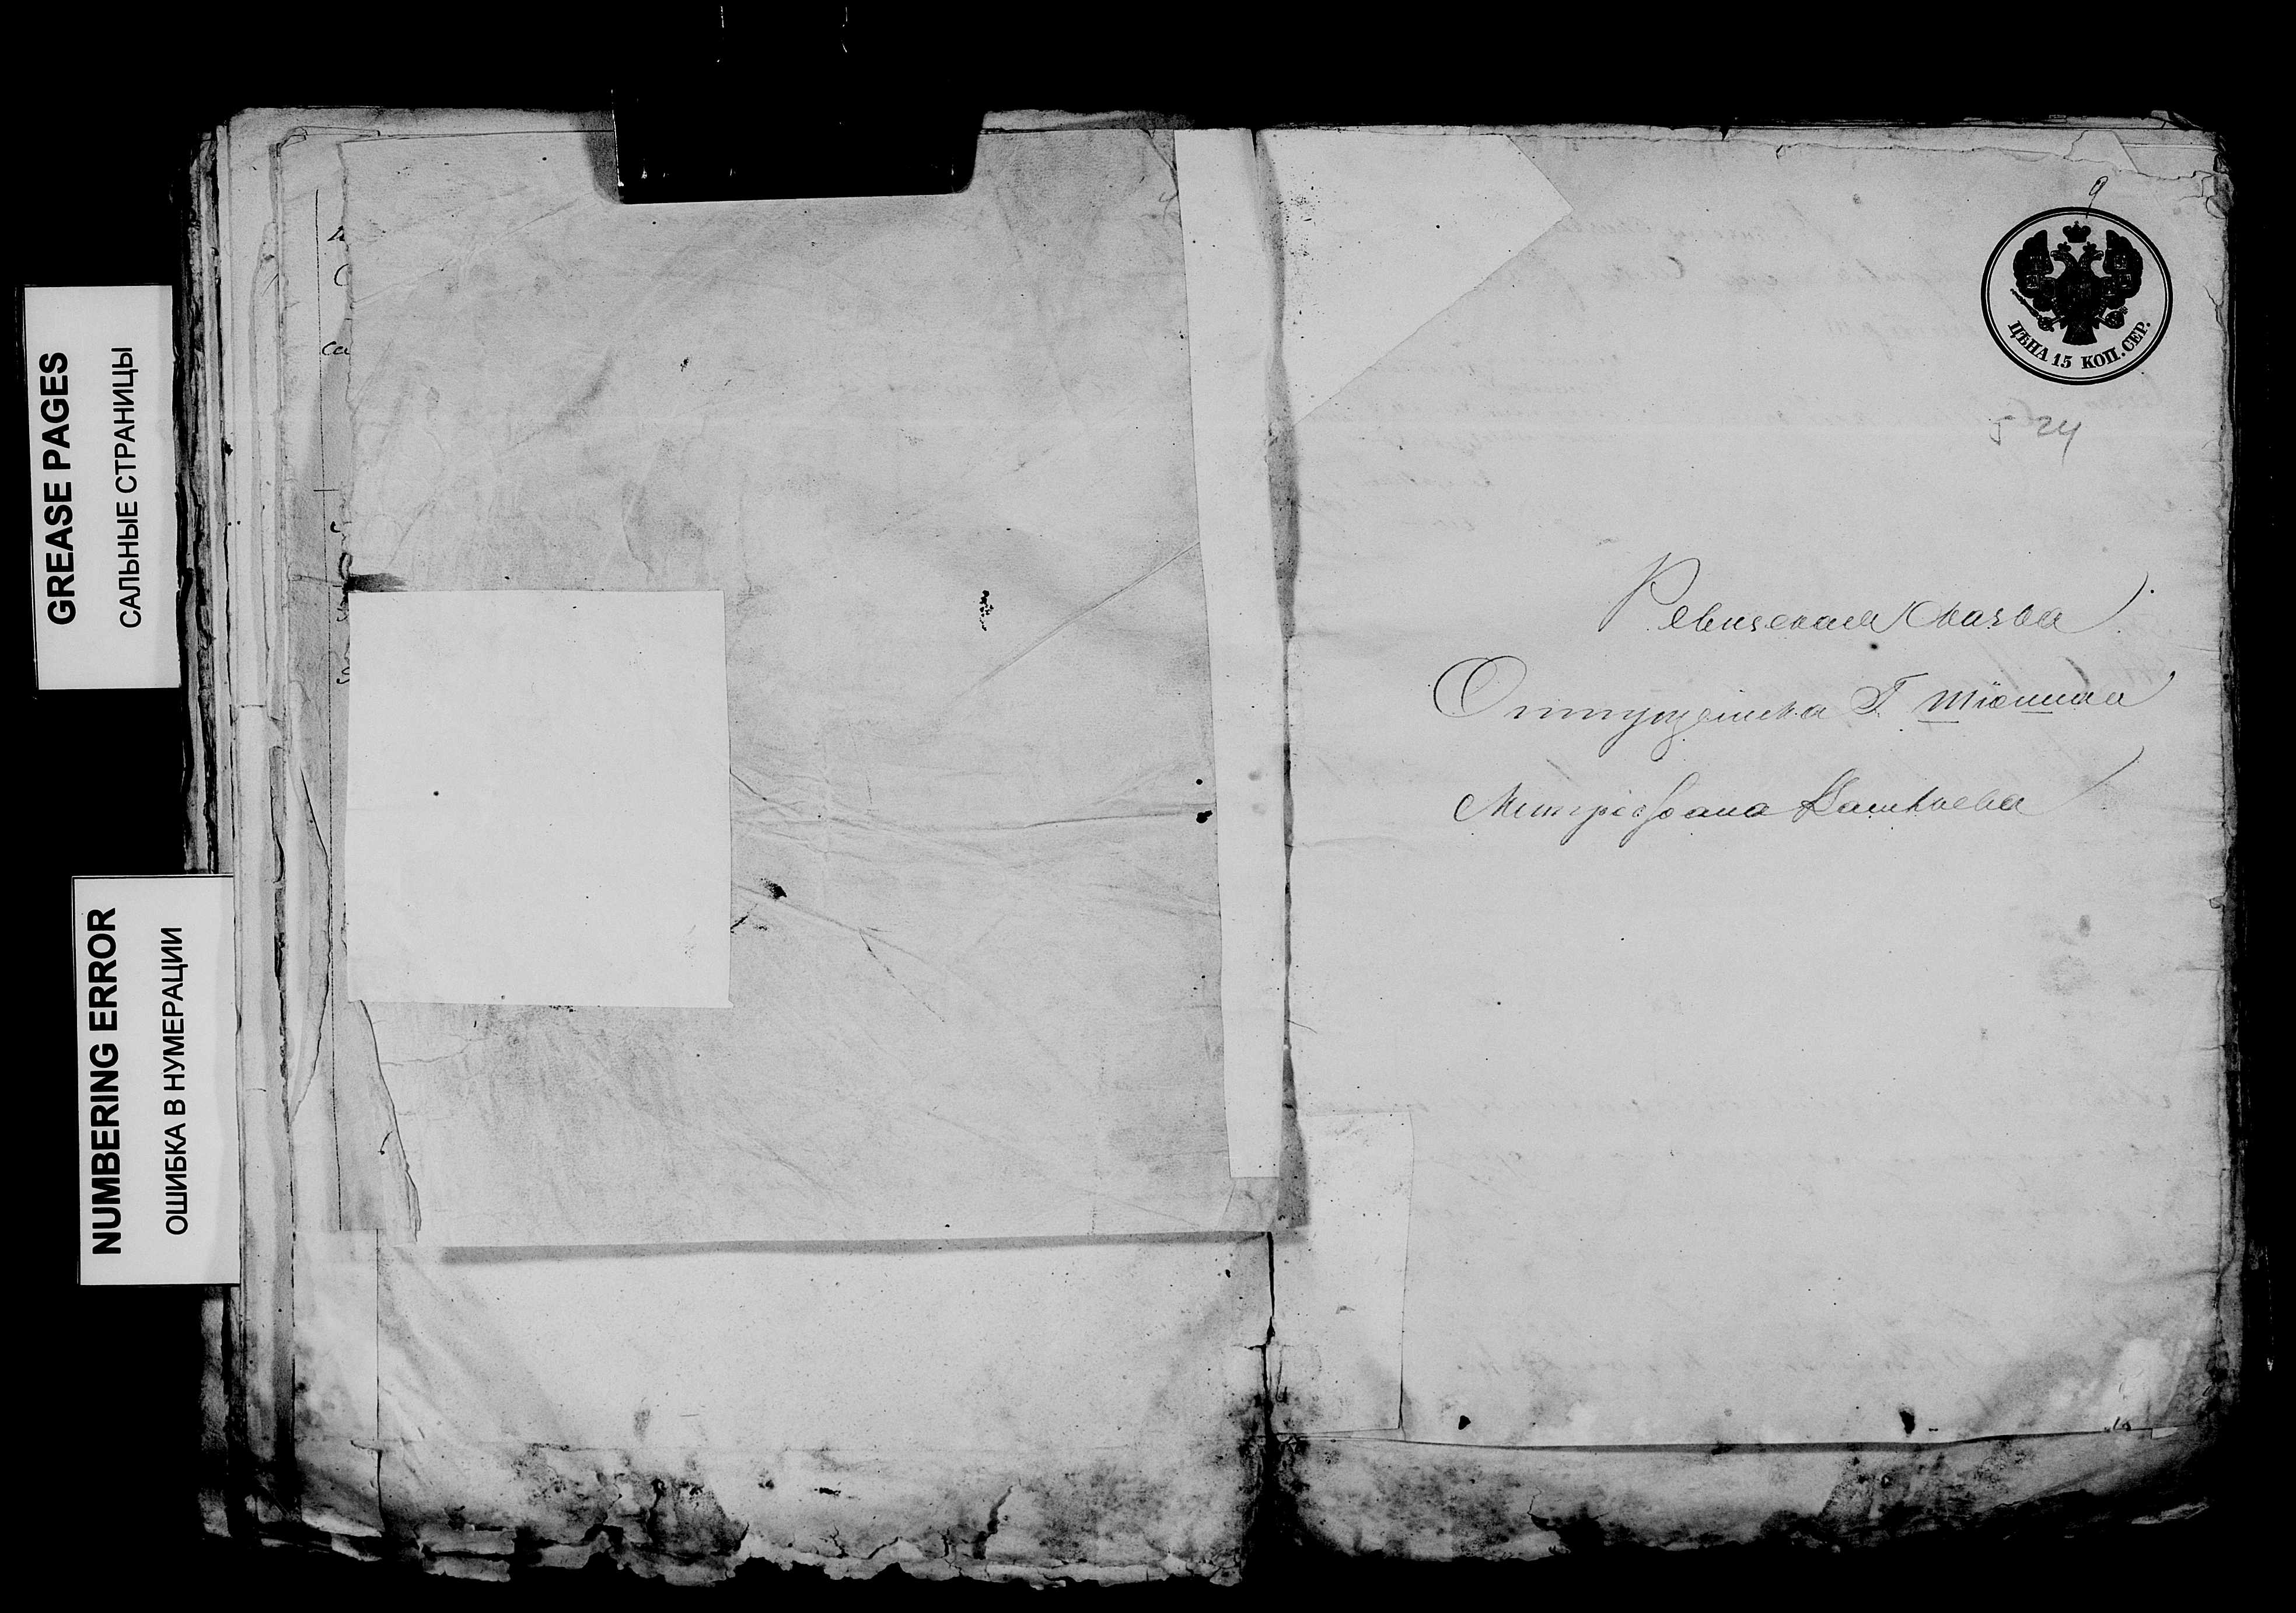 GREASE PAGES
САЛЬНЫЕ СТРАНИЦЫ
NUMBERING ERROR
ОШИБКА В НУМЕРАЦИИ
са
9
ЦѢНА 15 КОП. СЕР.
524
Ревизская Сказка
Отпущеника Г. Тюнина
Митрофана